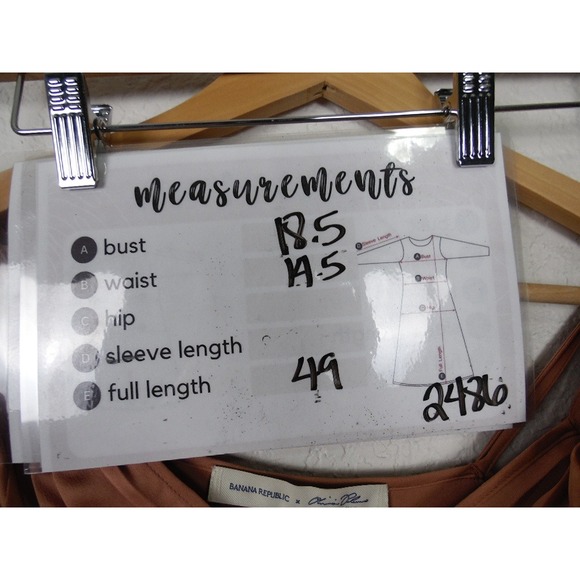 measurements
A bust 18.5
B waist 14.5
C hip
D sleeve length
E full length 49
D Sleeve Length
A Bust
B Waist
C Hip
E Full Length
2486
BANANA REPUBLIC x